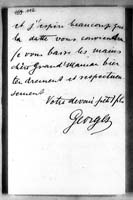 et j'espère beaucoup que
la datte vous conviendra
Je vous baise les mains
chère Grand'Maman bien
tendrement et respectueu
sement
Votre dévoué petit fils
Georges